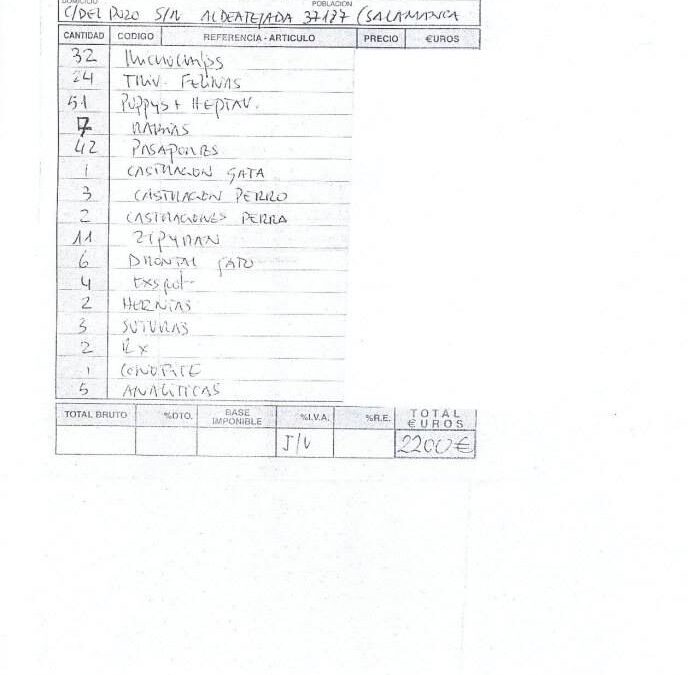 DOMICILIO POBLACIÓN
C/DEL POZO S/N ALDEATEJADA 37187 (SALAMANCA
CANTIDAD CODIGO REFERENCIA - ARTICULO PRECIO €UROS
32 Microchips
24 TRIV. FELINAS
51 Puppys + HEPTAV.
7 RABIAS
42 PASAPORTES
1 CASTRACION GATA
3 CASTRACION PERRO
2 CASTRACIONES PERRA
11 ZIPYRAN
6 DRONTAL GATO
4 Exspot
2 HERNIAS
3 SUTURAS
2 RX
1
5 ANALITICAS
TOTAL BRUTO %DTO. BASE IMPONIBLE %I.V.A. %R.E. TOTAL €UROS
2200 €